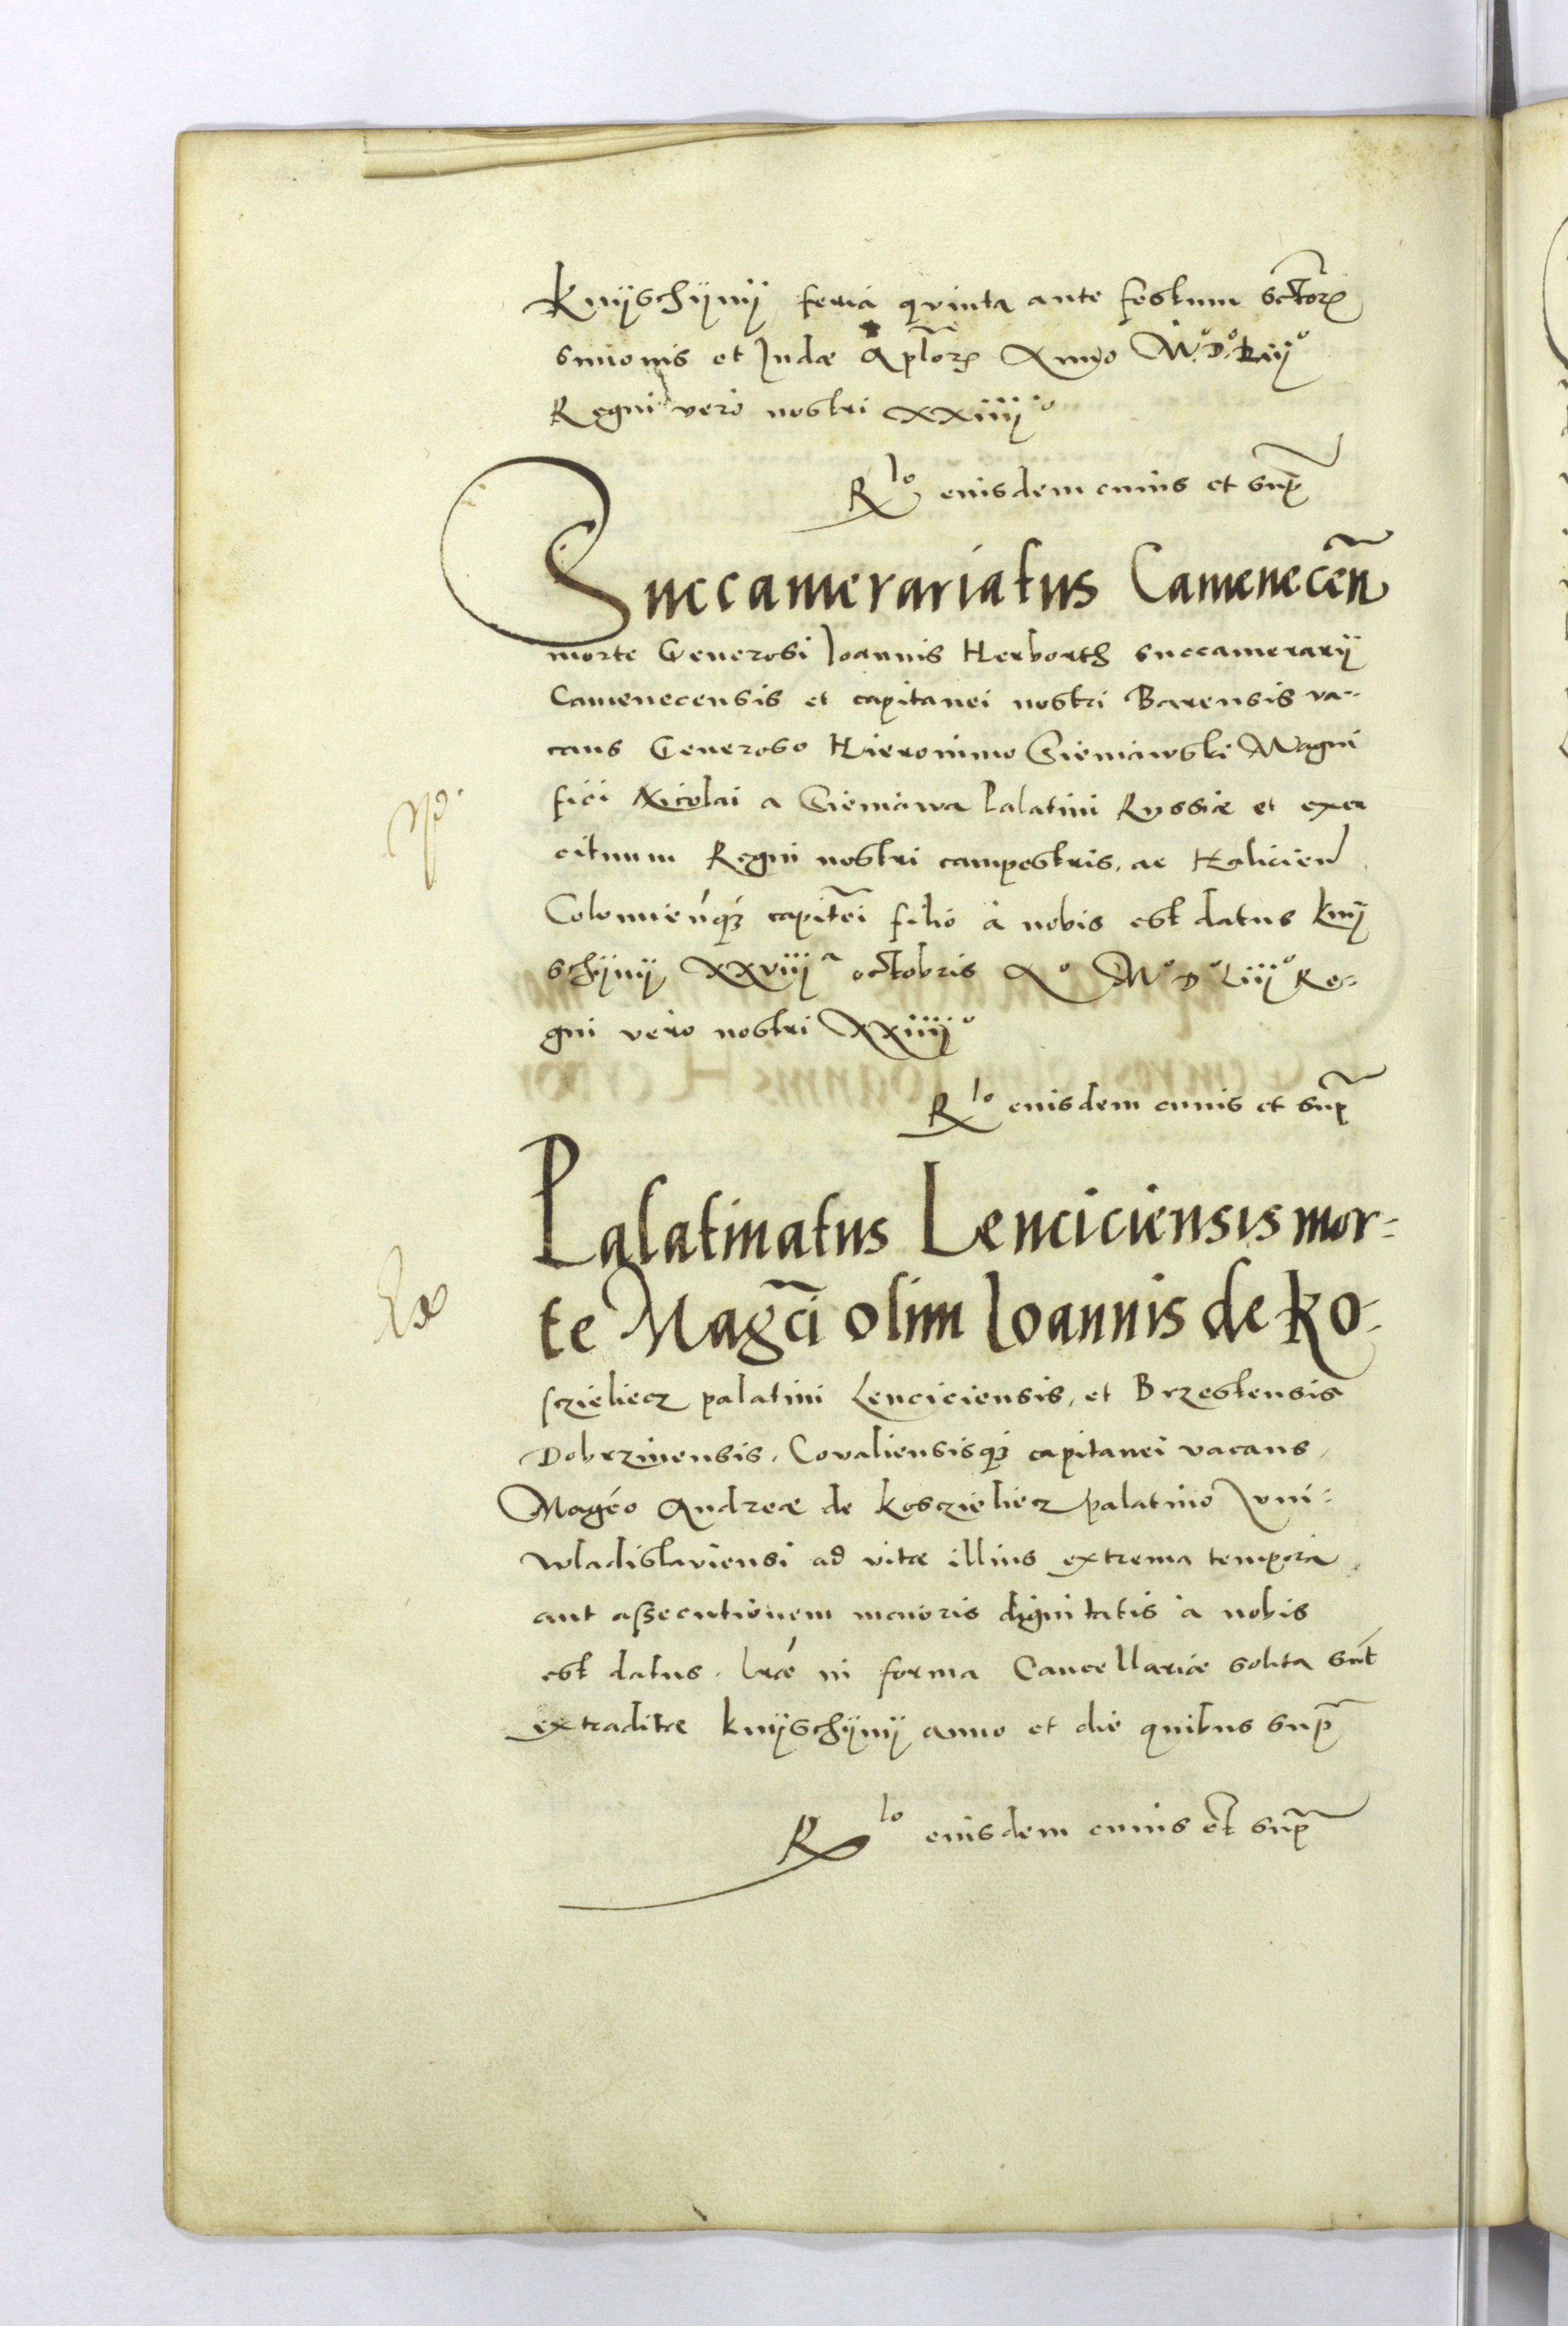 Knÿschÿnÿ feria qvinta ante festum sctorꝝ
Simonis et Iudæ Aplorꝝ Anno Mº.Dº.Liijº
Regni vero nostri xxiiijº
Rlo eiusdem cuius et supˉ
Succamerariatus Camenecen̄
morte Generosi Ioannis Herborth succamerarij
Camenecensis et capitanei nostri Barensis va-
cans Generoso Hieronimo Sieniawski Magni
fici Nicolai a Sieniawa Palatini Russiæ et exer
cituum Regni nostri campestris, ac Halicien̄
Colomien̄qꝫ capitēi filio à nobis est datus knÿ
schÿnÿ xxviijª octobris Aº Mº Dº Liijº Re-
gni vero nostri xxiiijº
Rlo eiusdem cuius et supˉ
Palatinatus Lenciciensis mor-
te Magc̄i olim Ioannis de Ko-
sczieliecz palatini Lenciciensis, et Brzestensis
Dobrzinensis, Covaliensisqꝫ capitanei vacans,
Magc̄o Andreæ de Kosczieliecz palatino Iuni-
wladislaviensi ad vitæ illius extrema tempora
aut assecutionem maioris dignitatis à nobis
est datus. lr̄æ in forma Cancellariæ solita sūt
extraditæ knÿschÿnÿ anno et die quibus supˉ
Rlo eiusdem cuius et supˉ